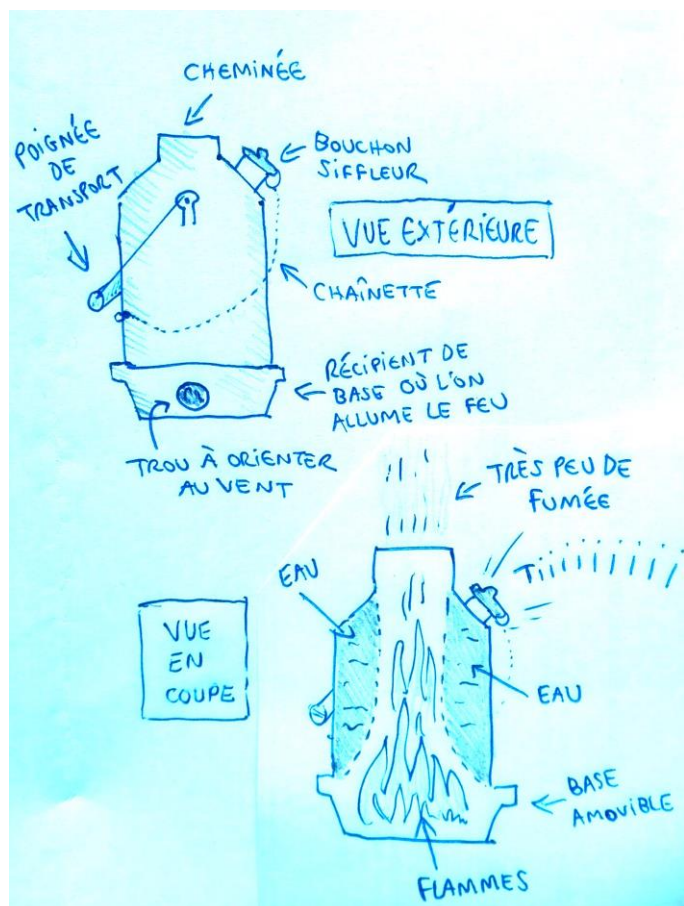 CHEMINÉE
POIGNÉE
DE
TRANSPORT
BOUCHON
SIFFLEUR
VUE EXTÉRIEURE
CHAÎNETTE
RÉCIPIENT DE
BASE OÙ L'ON
ALLUME LE FEU
TROU À ORIENTER
AU VENT
TRÈS PEU DE
FUMÉE
EAU
Tiiiııııııı
VUE
EN
COUPE
EAU
BASE
AMOVIBLE
FLAMMES